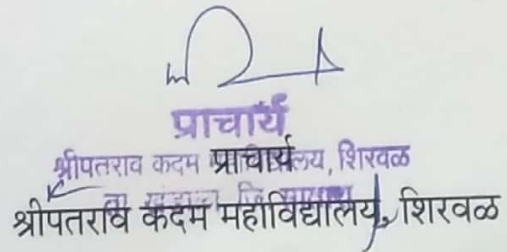 प्राचार्य
श्रीपतराव कदम महाविद्यालय, शिरवळ
प्राचार्य
ता. खंडाळा जि. सातारा
श्रीपतराव कदम महाविद्यालय, शिरवळ